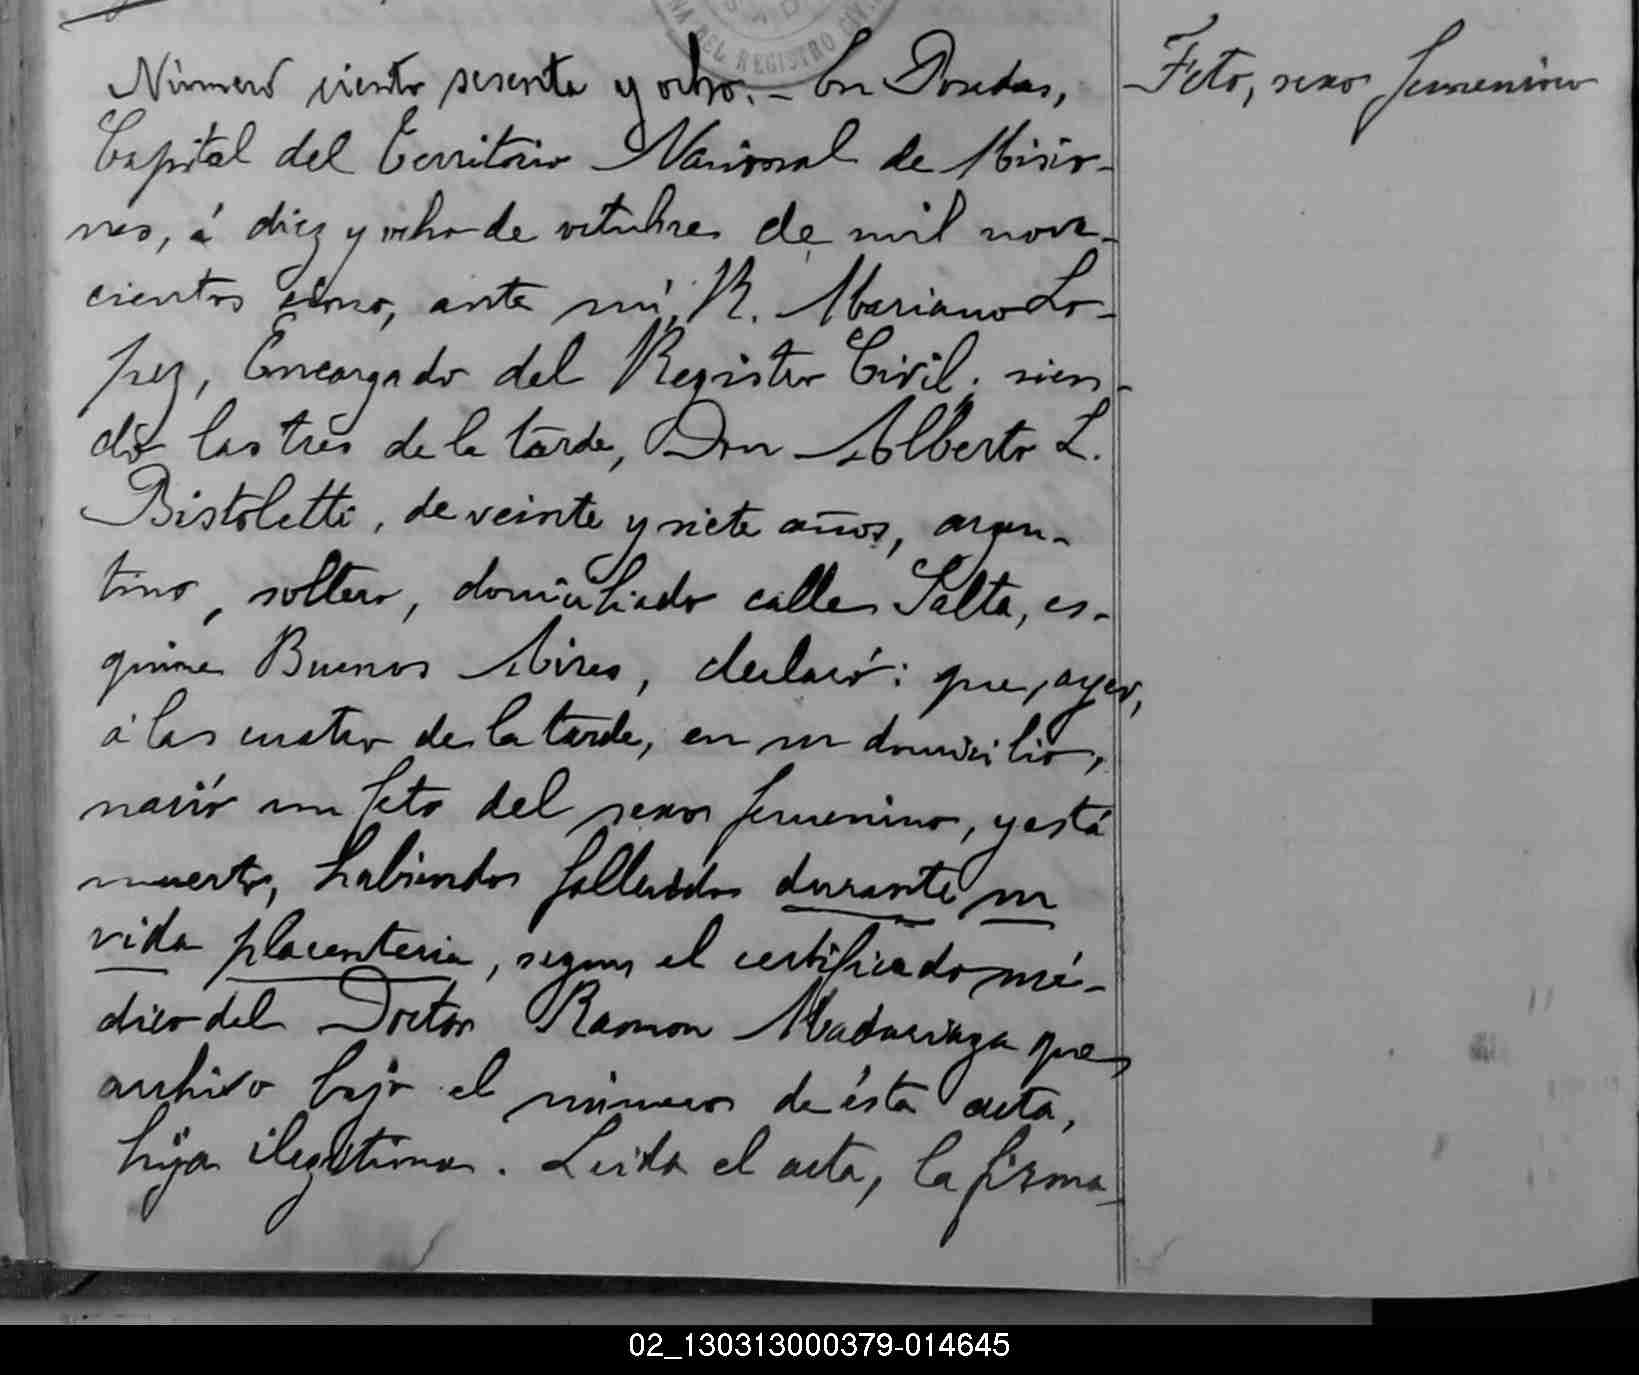 NA DEL REGISTRO CIV
Número ciento sesenta y ocho. - En Posadas,
Feto, sexo femenino
Capital del Territorio Nacional de Misio-
nes, á diez y ocho de octubre de mil nove-
cientos cinco, ante mí, R. Mariano Lo-
pez, Encargado del Registro Civil, sien-
do las tres de la tarde, Don Alberto L.
Bistoletti, de veinte y siete años, argen-
tino, soltero, domiciliado calle Salta, es-
quina Buenos Aires, declaró: que, ayer,
á las cuatro de la tarde, en su domicilio,
nació un feto del sexo femenino, y está
muerto, habiendo fallecido durante su
vida placenteria, segun el certificado mé-
dico del Doctor Ramon Madariaga que
archivo bajo el número de ésta acta,
hija ilegitima. Leida el acta, la firma
02_130313000379-014645